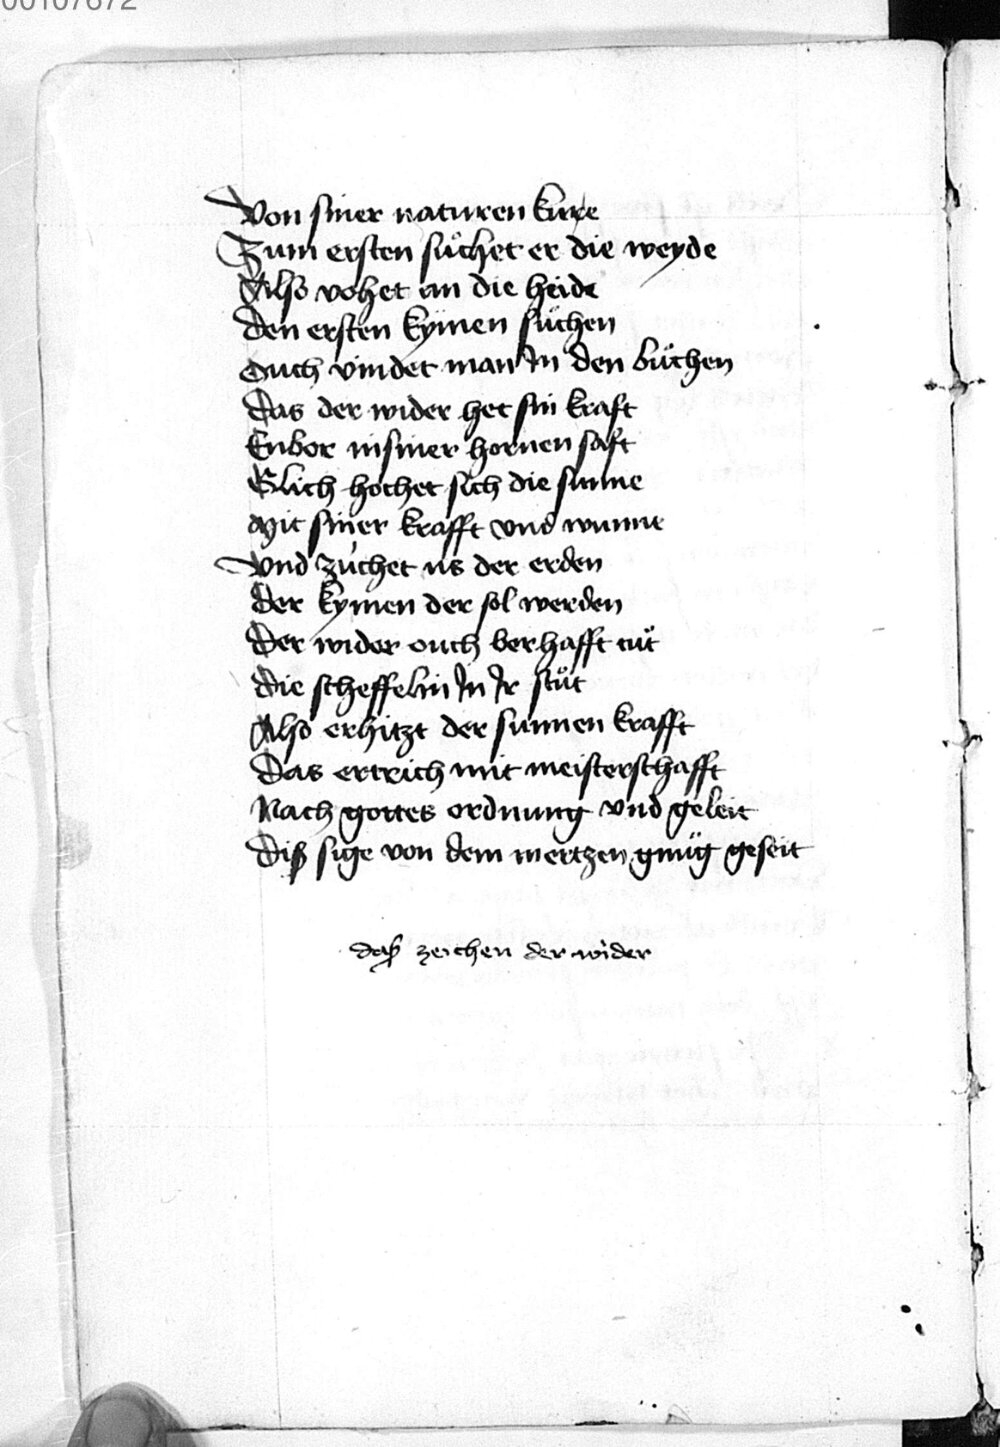 00107672
Von siner naturen kure
Zum ersten suͦchet er die weyde
Also vohet an die heide
Den ersten kymen suͦchen
Ouch vindet man Jn den buͦchen
Das der wider het sin kraft
Enbor in siner hornen saft
Glich hochet sich die sunne
Mit siner krafft vnd wunne
Vnd zúchet us der erden
Der kymen der sol werden
Der wider ouch berhafft tuͦt
Die scheffelin Jn Jr stuͦt
Also erhitzt der sunnen krafft
Das ertrich mit meisterschafft
Nach gottes ordnung vnd geleit
Diß sige von dem mertzen gnuͦg geseit
daß zeichen der wider